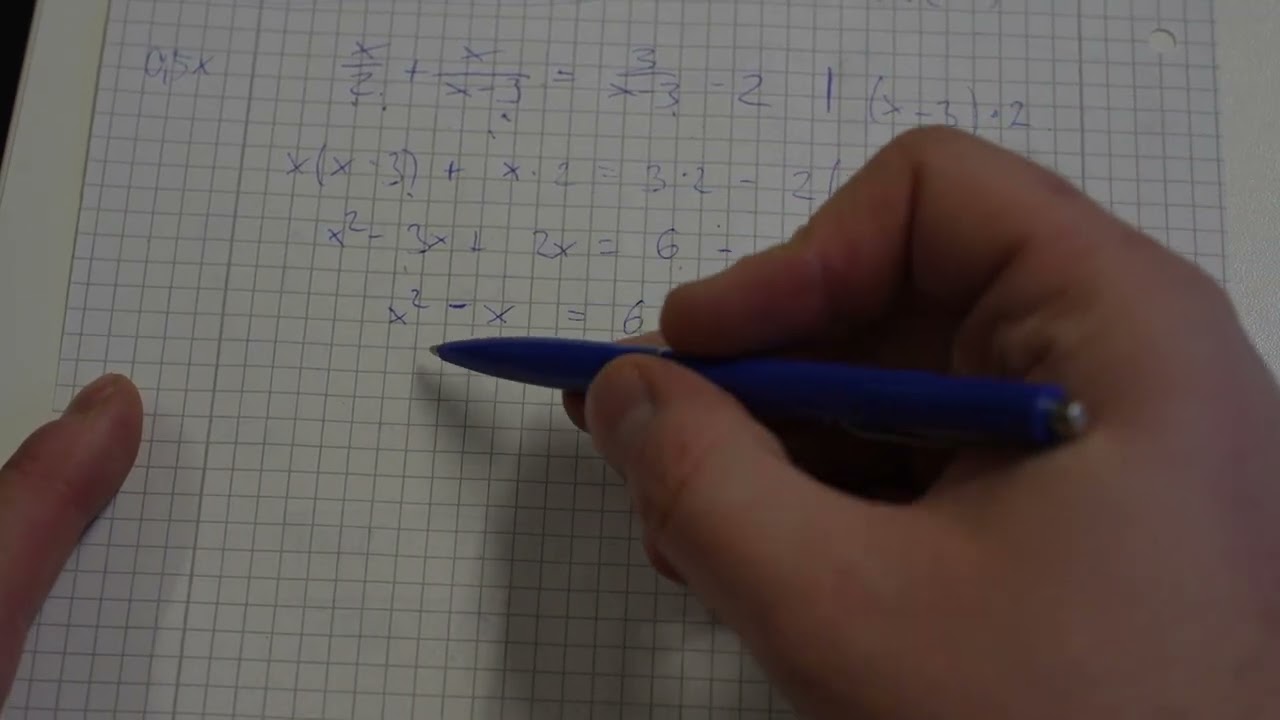 0,5x x/2 + x/(x-3) = 3/(x-3) - 2 | (x-3)·2
x(x-3) + x·2 = 3·2 - 2(
x² - 3x + 2x = 6 -
x² - x = 6